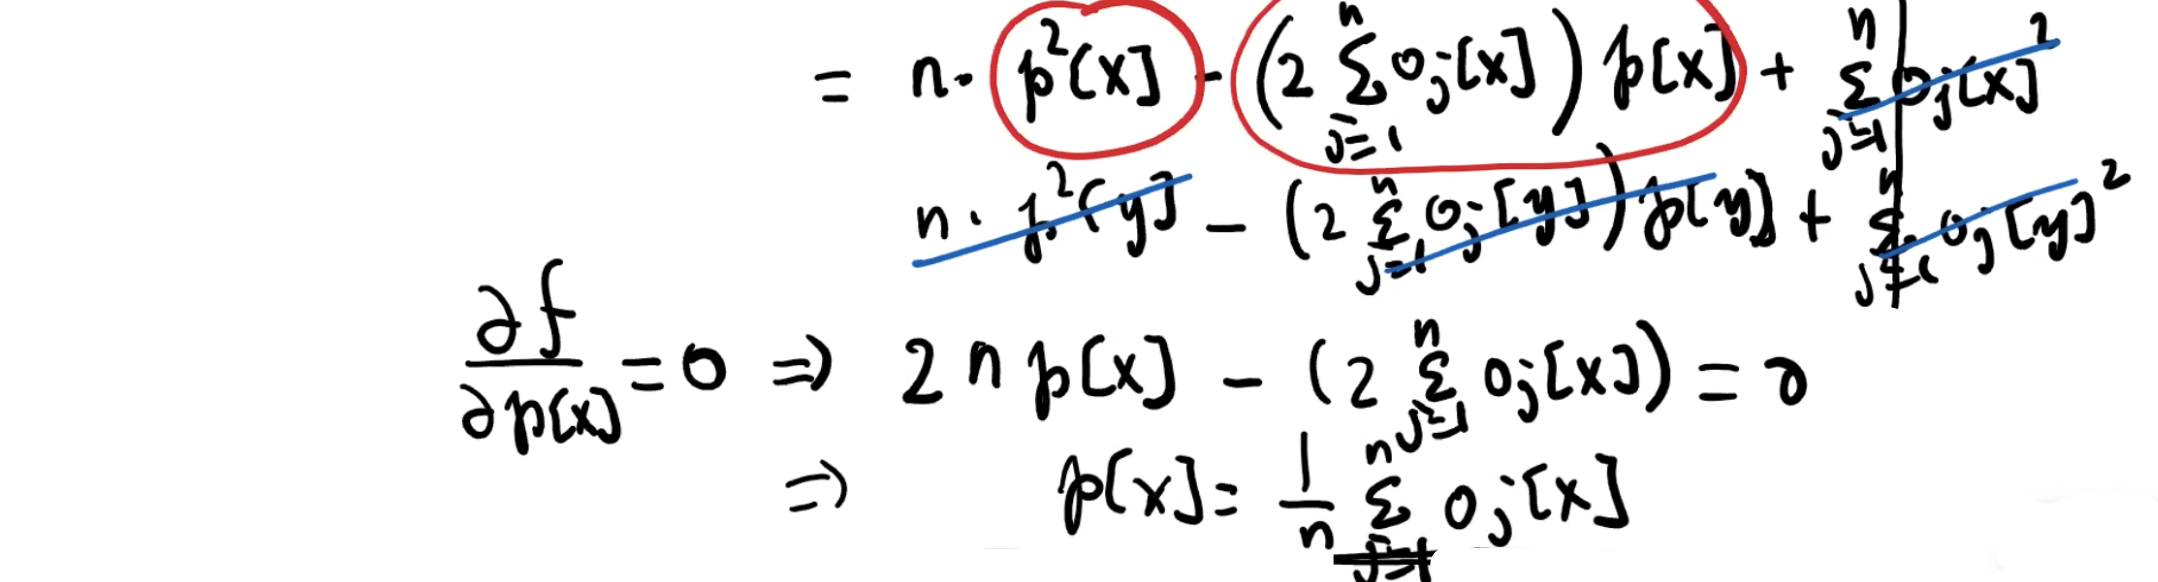 = n · p²[x] - (2 ∑_{j=1}^{n} o_j[x]) p[x] + ∑_{j=1}^{n} o_j[x]²
n · p²[y] - (2 ∑_{j=1}^{n} o_j[y]) p[y] + ∑_{j=1}^{n} o_j[y]²
∂f/∂p[x] = 0 ⇒ 2 n p[x] - (2 ∑_{j=1}^{n} o_j[x]) = 0
⇒ p[x] = 1/n ∑_{j=1}^{n} o_j[x]